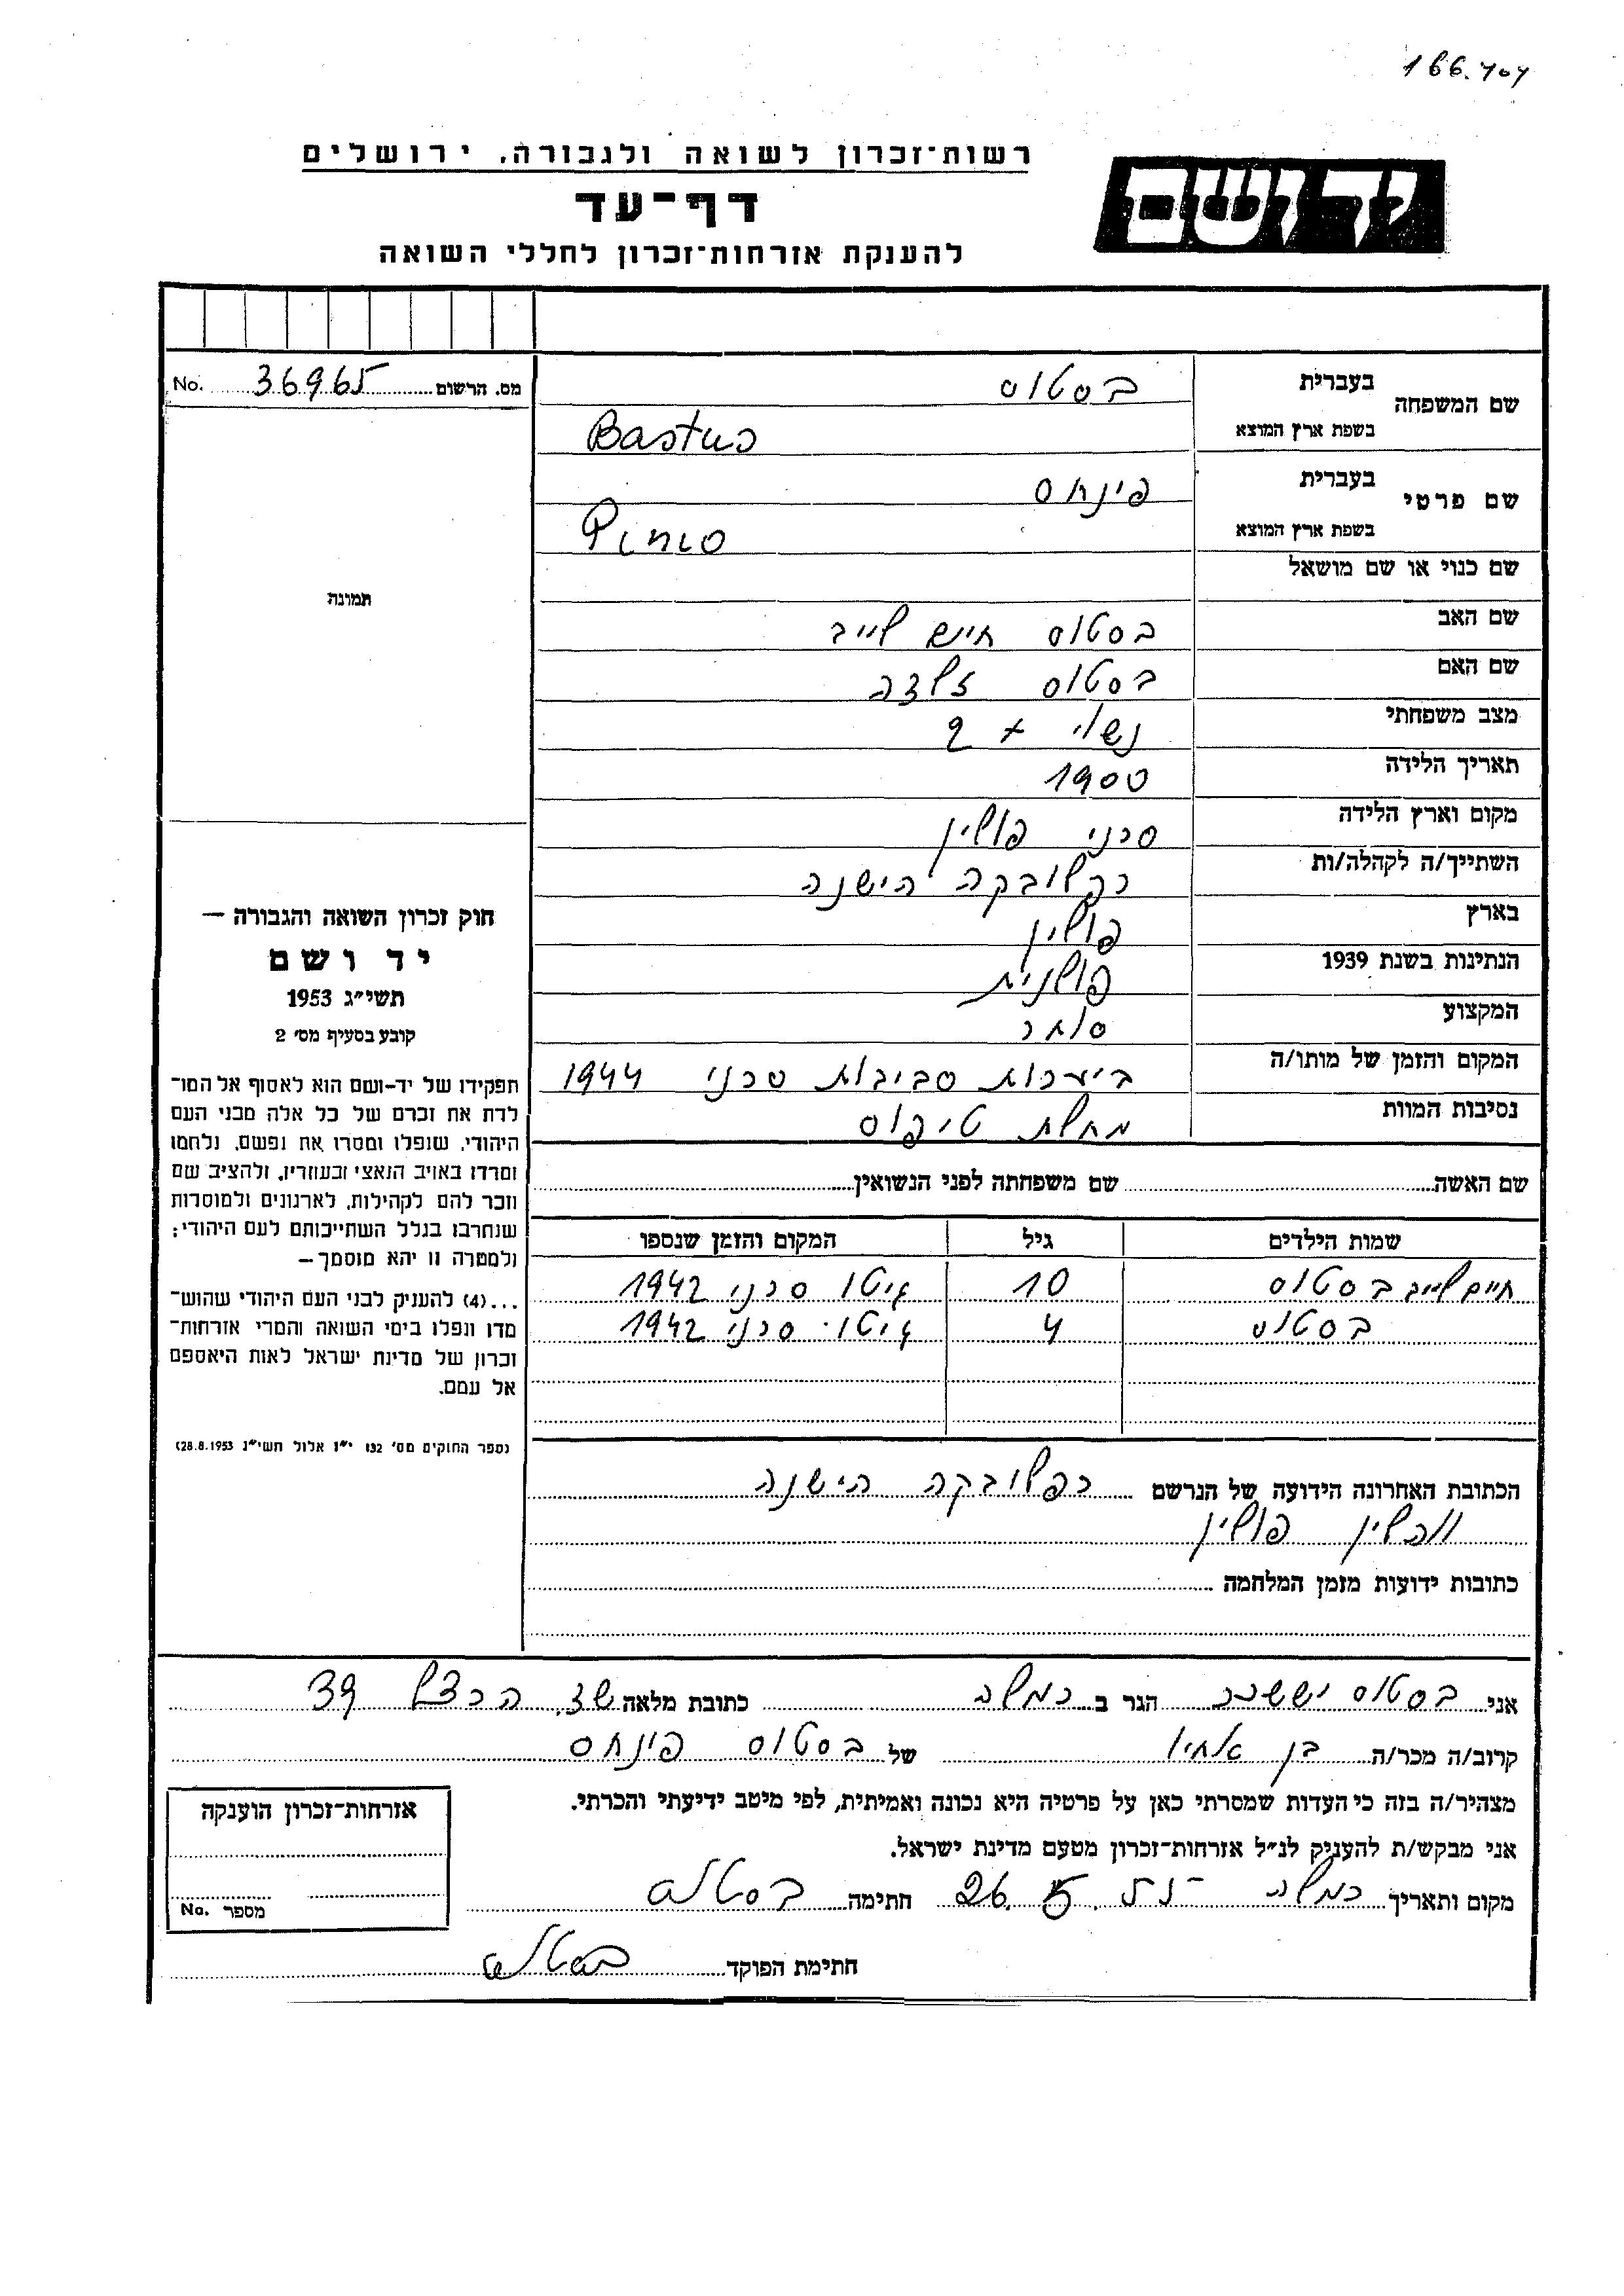 166.404
יד ושם
רשות־זכרון לשואה ולגבורה, ירושלים
דף־עד
להענקת אזרחות־זכרון לחללי השואה
מס. הרשום 36965 No.
תמונה
שם המשפחה בעברית בסטוס
בשפת ארץ המוצא Bastus
שם פרטי בעברית פינחס
בשפת ארץ המוצא
שם כנוי או שם מושאל
שם האב בסטוס חיים לייב
שם האם בסטוס זלדה
מצב משפחתי נשוי + 2
תאריך הלידה 1900
מקום וארץ הלידה סרני פולין
השתייך/ה לקהלה/ות רפלובקה הישנה
בארץ פולין
הנתינות בשנת 1939 פולנית
המקצוע סוחר
המקום והזמן של מותו/ה ביערות סביבות סרני 1944
נסיבות המוות מחלת טיפוס
שם האשה שם משפחתה לפני הנשואין
שמות הילדים גיל המקום והזמן שנספו
חיים לייב בסטוס 10 גיטו סרני 1942
בסטוס 4 גיטו סרני 1942
הכתובת האחרונה הידועה של הנרשם רפלובקה הישנה
ווהלין פולין
כתובות ידועות מזמן המלחמה
חוק זכרון השואה והגבורה —
יד ושם
תשי״ג 1953
קובע בסעיף מס׳ 2
תפקידו של יד-ושם הוא לאסוף אל המו־
לדת את זכרם של כל אלה מבני העם
היהודי, שנפלו ומסרו את נפשם, נלחמו
ומרדו באויב הנאצי ובעוזריו, ולהציב שם
וזכר להם לקהילות, לארגונים ולמוסדות
שנחרבו בגלל השתייכותם לעם היהודי;
ולמטרה זו יהא מוסמך —
...(4) להעניק לבני העם היהודי שהוש־
מדו ונפלו בימי השואה והמרי אזרחות־
זכרון של מדינת ישראל לאות היאספם
אל עמם.
(ספר החוקים מס׳ 132 י״ז אלול תשי״ג 28.8.1953)
אני בסטוס יששכר הגר ב רמלה כתובת מלאה שד. הרצל 39
קרוב/ה מכר/ה בן אחיו של בסטוס פינחס
מצהיר/ה בזה כי העדות שמסרתי כאן על פרטיה היא נכונה ואמיתית, לפי מיטב ידיעתי והכרתי.
אני מבקש/ת להעניק לנ״ל אזרחות־זכרון מטעם מדינת ישראל.
מקום ותאריך רמלה חתימה בסטוס
חתימת הפוקד
אזרחות־זכרון הוענקה
מספר No.